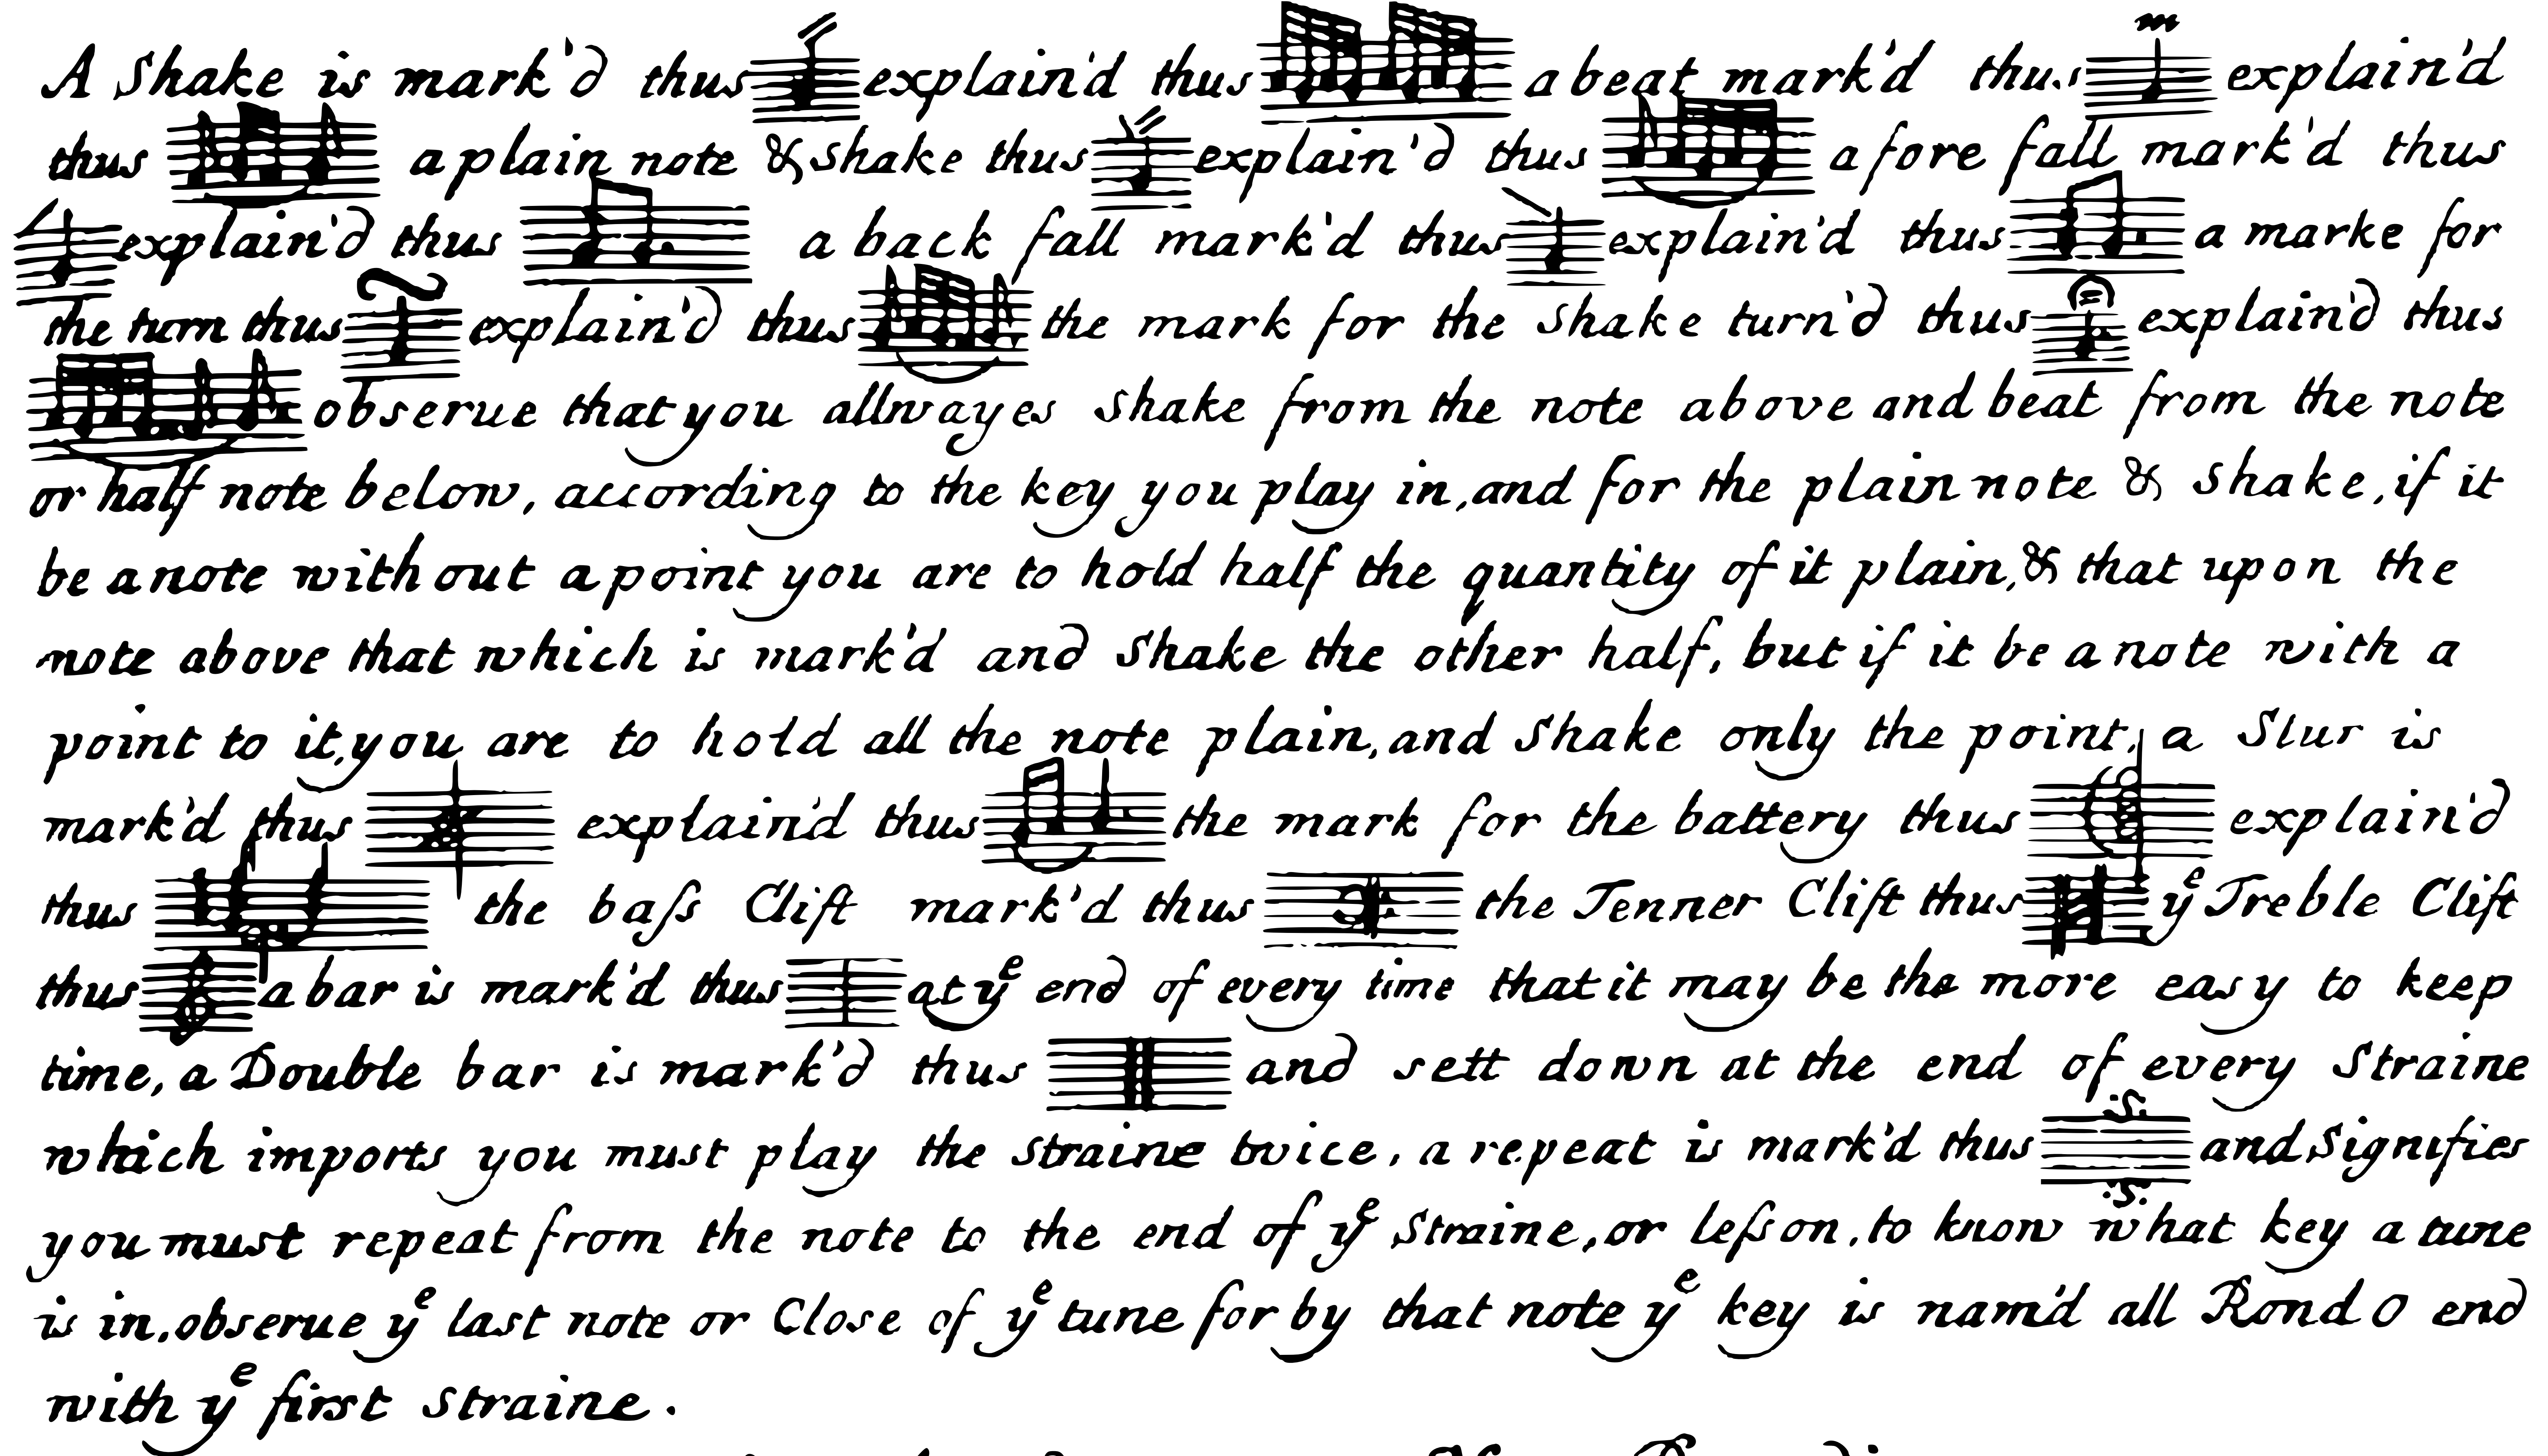 A Shake is mark'd thus explain'd thus a beat mark'd thus explain'd
thus a plain note & shake thus explain'd thus a fore fall mark'd thus
explain'd thus a back fall mark'd thus explain'd thus a marke for
the turn thus explain'd thus the mark for the shake turn'd thus explain'd thus
observe that you allwayes shake from the note above and beat from the note
or half note below, according to the key you play in, and for the plain note & shake, if it
be a note without a point you are to hold half the quantity of it plain, & that upon the
note above that which is mark'd and Shake the other half, but if it be a note with a
point to it, you are to hold all the note plain, and Shake only the point, a Slur is
mark'd thus explain'd thus the mark for the battery thus explain'd
thus the baſs Clift mark'd thus the Tenner Clift thus yᵉ Treble Clift
thus a bar is mark'd thus at yᵉ end of every time that it may be the more easy to keep
time, a Double bar is mark'd thus and sett down at the end of every Straine
which imports you must play the straine twice, a repeat is mark'd thus .S. and Signifies
you must repeat from the note to the end of yᵉ Straine, or leſson, to know what key a tune
is in, observe yᵉ last note or Close of yᵉ tune for by that note yᵉ key is nam'd all Rond O end
with yᵉ first straine.